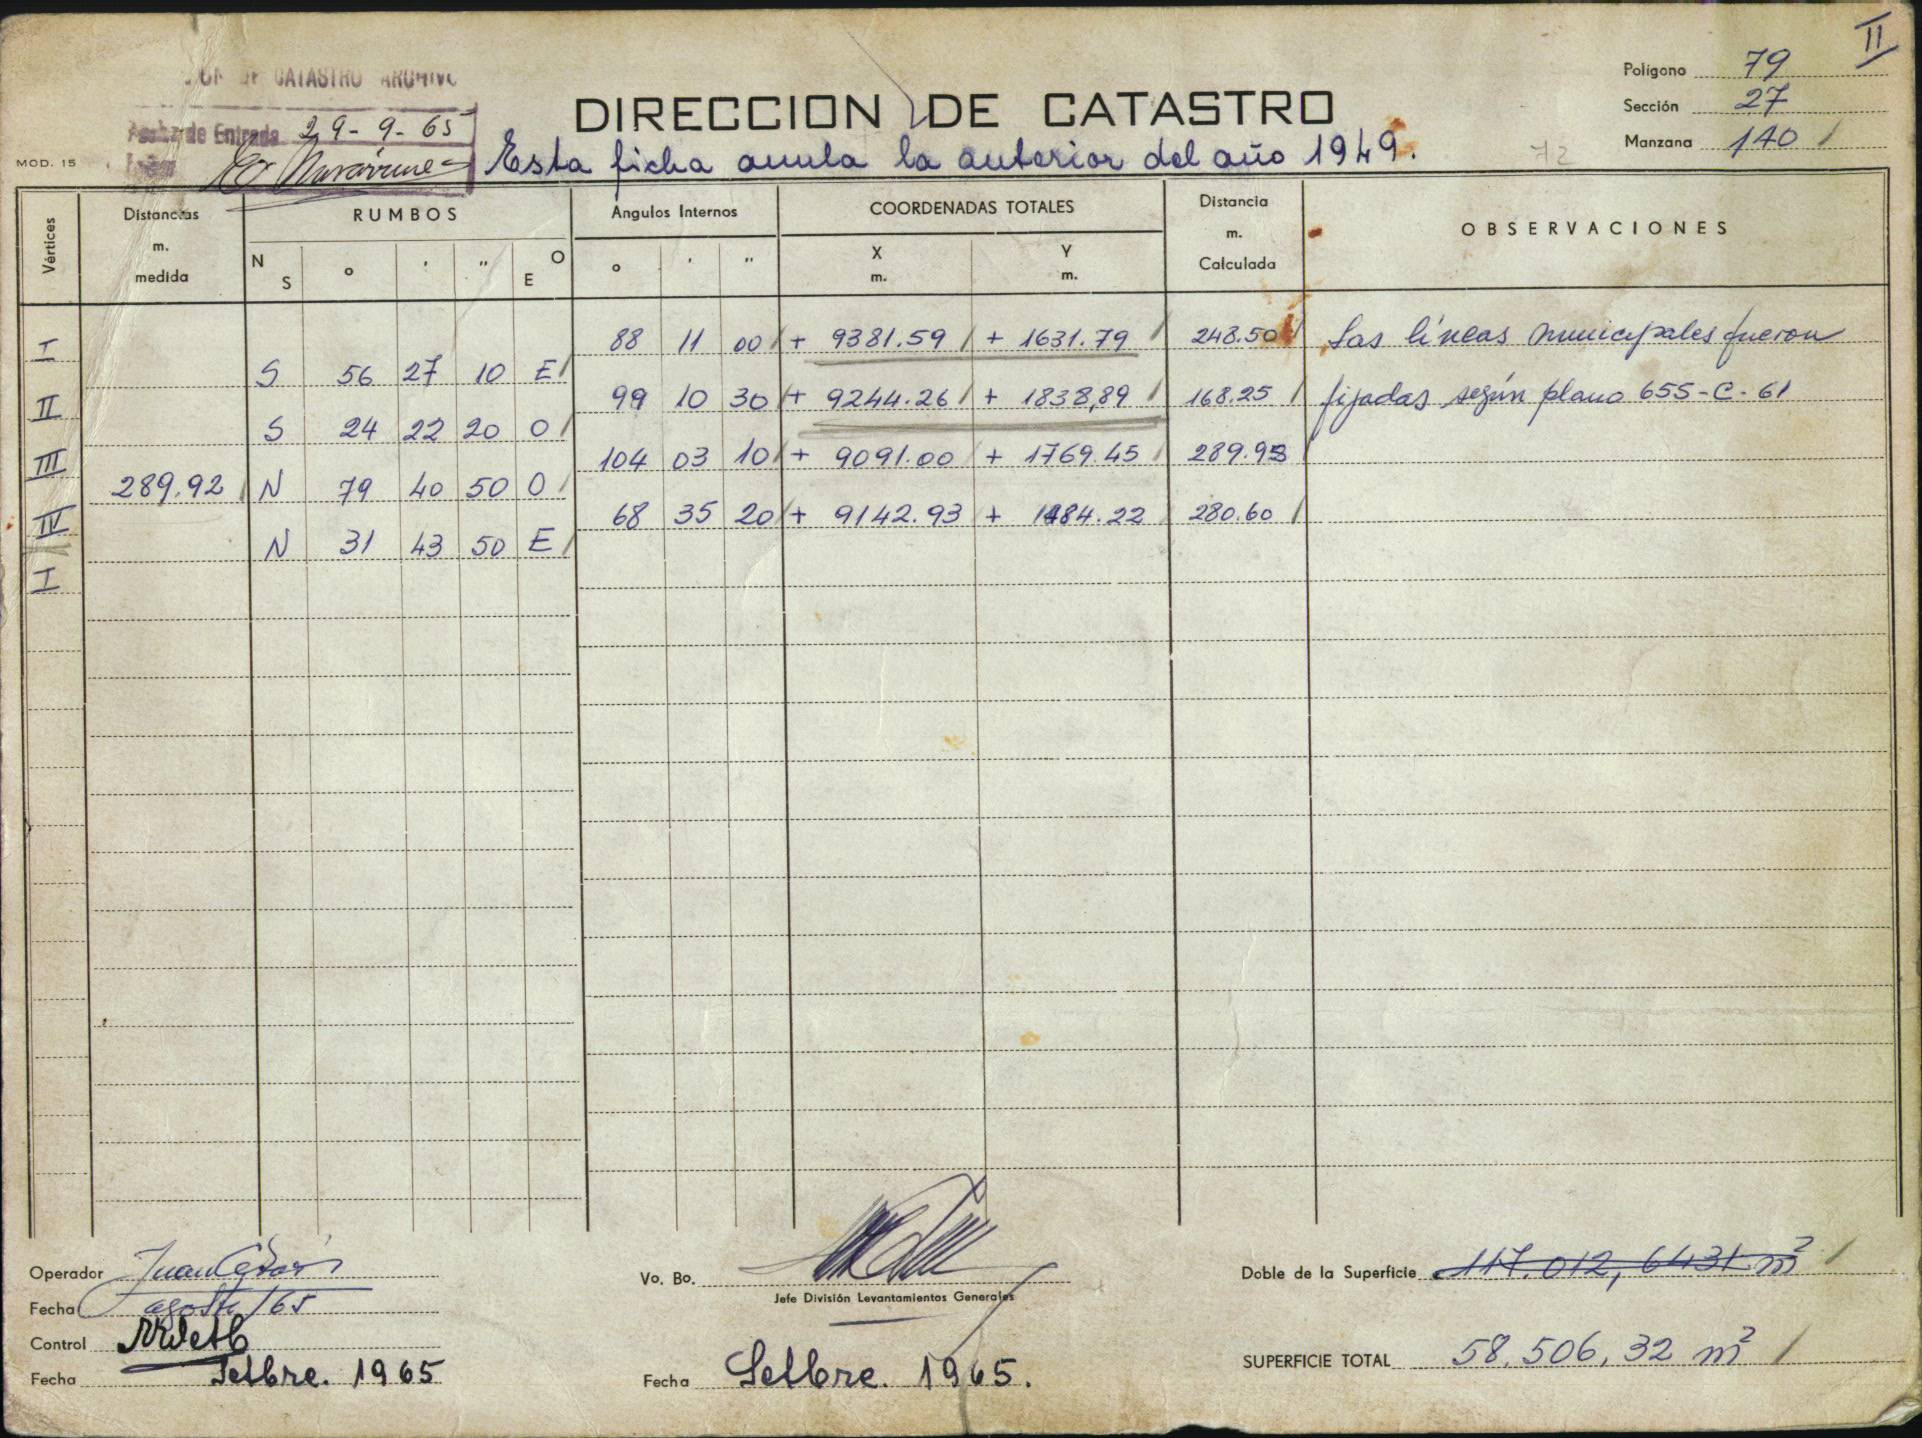 II
CATASTRO ARCHIVO
Polígono 79
Sección 27
Manzana 140
DIRECCION DE CATASTRO
de Entrada 29-9-65
MOD. 15
Esta ficha anula la anterior del año 1949.
72
Vértices
Distancias m. medida
RUMBOS
N S ° ' " O E
Angulos Internos
° ' "
COORDENADAS TOTALES
X m. Y m.
Distancia m. Calculada
OBSERVACIONES
I 88 11 00 + 9381.59 + 1631.79 248.50 Las líneas municipales fueron
S 56 27 10 E
II 99 10 30 + 9244.26 + 1838,89 168.25 fijadas según plano 655-C-61
S 24 22 20 O
III 104 03 10 + 9091.00 + 1769.45 289.93
289.92 N 79 40 50 O
IV 68 35 20 + 9142.93 + 1484.22 280.60
N 31 43 50 E
I
Operador
Fecha agosto/65
Control
Fecha Setbre. 1965
Vo. Bo.
Jefe División Levantamientos Generales
Fecha Setbre. 1965.
Doble de la Superficie 117.012,6431 m²
SUPERFICIE TOTAL 58.506,32 m²